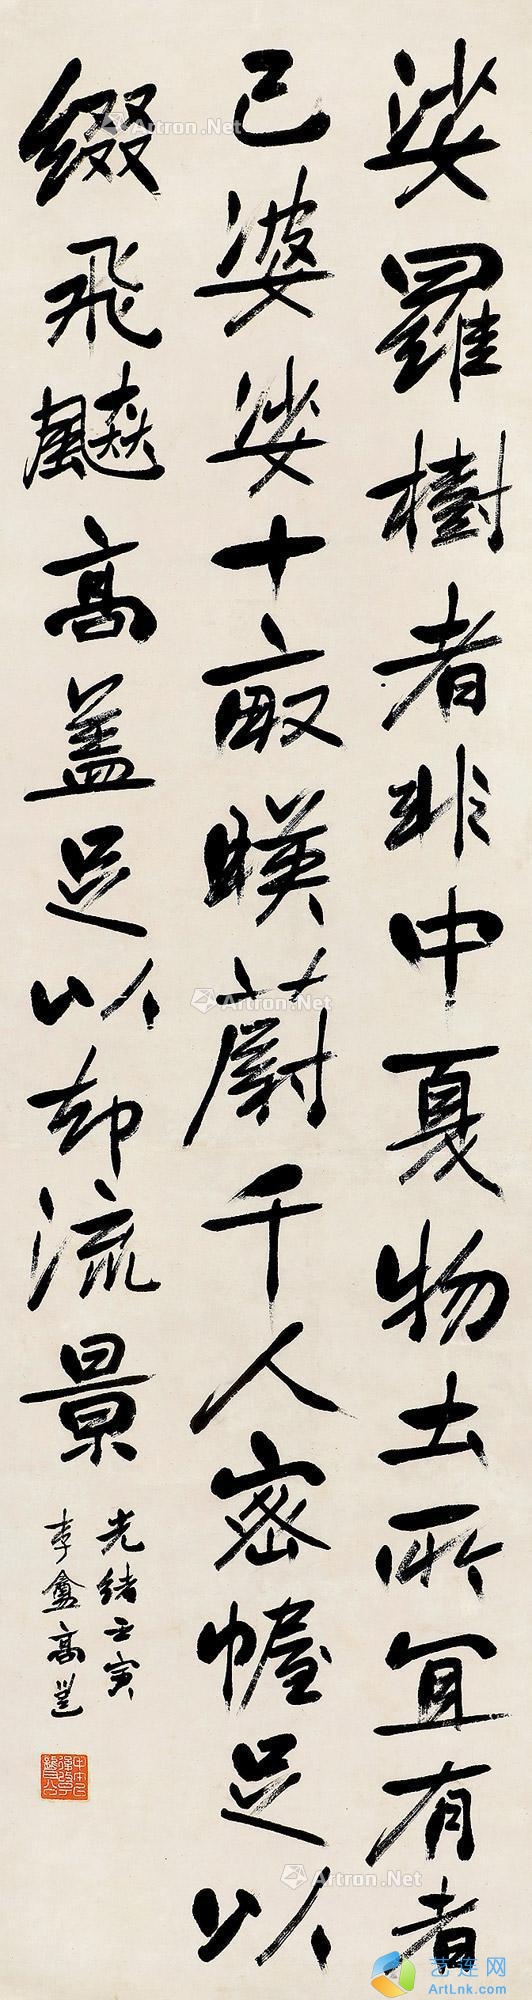 娑羅樹者非中夏物土所宜有者
已婆娑十畝暎蔚千人密幄足以
綴飛飈高蓋足以却流景
光緒壬寅
李盦高邕
Artron.Net
Artron.Net
Artron.Net
Artron.Net
艺连网
ArtLnk.com